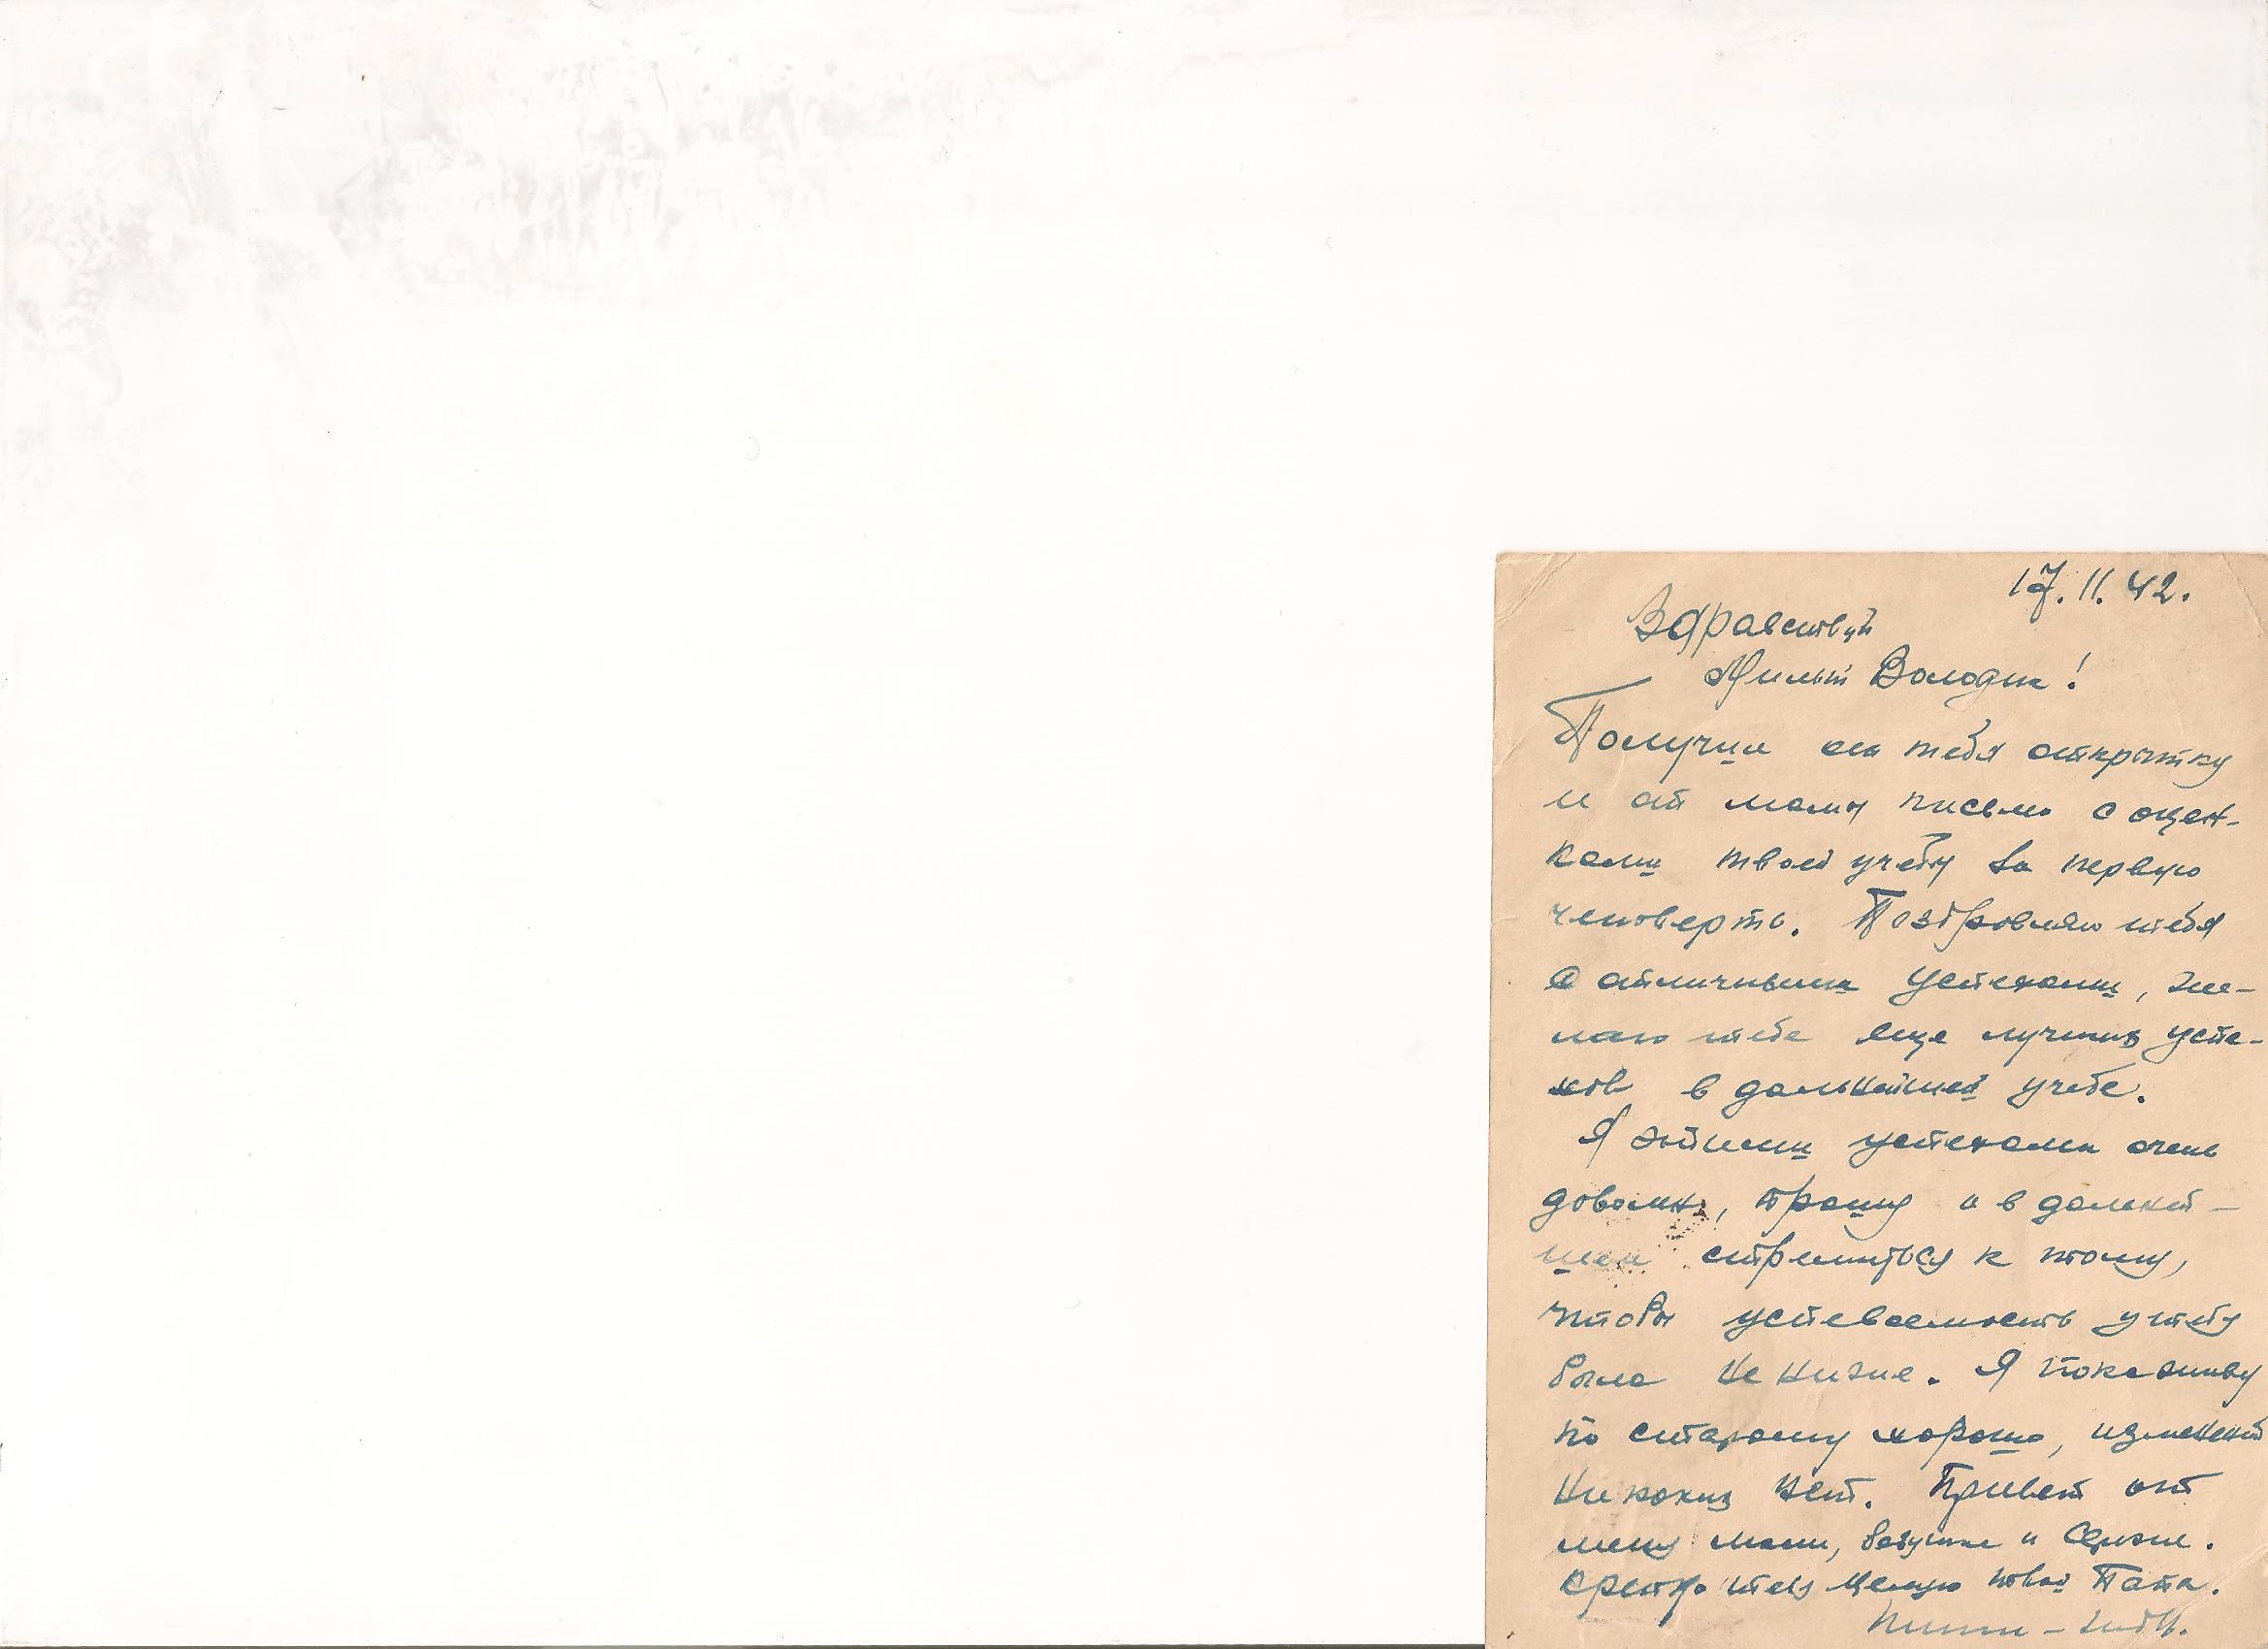 17.11.42.
Здравствуй
Милый Володя!
Получил от тебя открытку
и от мамы письмо с оцен-
ками твоей учебы за первую
четверть. Поздровляю тебя
с отличными успехами, же-
лаю тебе еще лучших успе-
хов в дальнейшей учебе.
Я этими успехами очень
доволен, прошу и в дальней-
шем стремиться к тому,
чтобы успеваемость у тебя
была не ниже. Я пока живу
по старому хорошо, изменений
никоких нет. Привет от
меня маме, бабушке и Сереже.
Крепко тебя целую твой Папа.
Пиши –